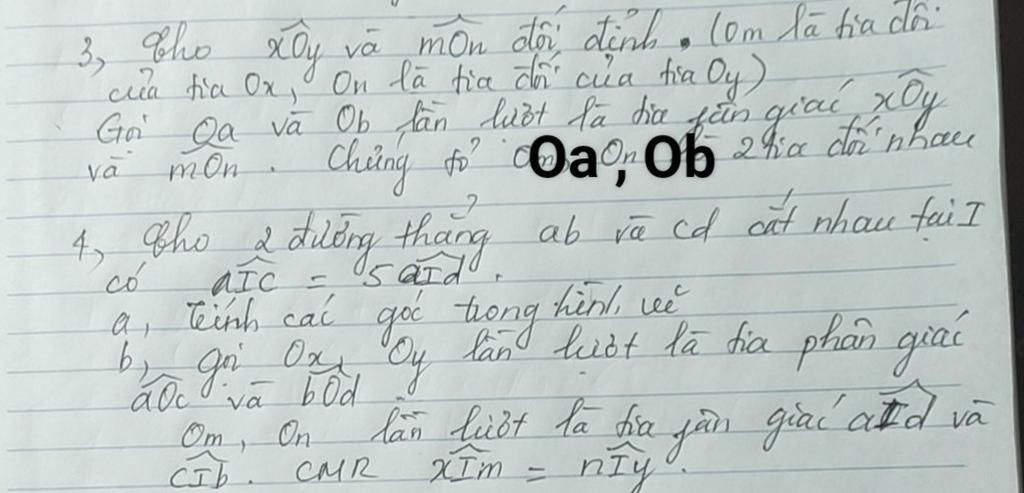 3, Cho xÔy và mÔn đối đỉnh. (Om là tia đối
của tia Ox, On là tia đối của tia Oy)
Gọi Oa và Ob lần lượt là tia fân giác xÔy
và mÔn. Chứng tỏ Oa, Ob 2 tia đối nhau
4, Cho 2 đường thẳng ab và cd cắt nhau tại I
có aÎc = 5 aÎd.
a, Tính các góc trong hình vẽ
b, gọi Ox, Oy lần lượt là tia phân giác
aÔc và bÔd
Om, On lần lượt là tia fân giác aÎd và
cÎb. CMR xÎm = nÎy.